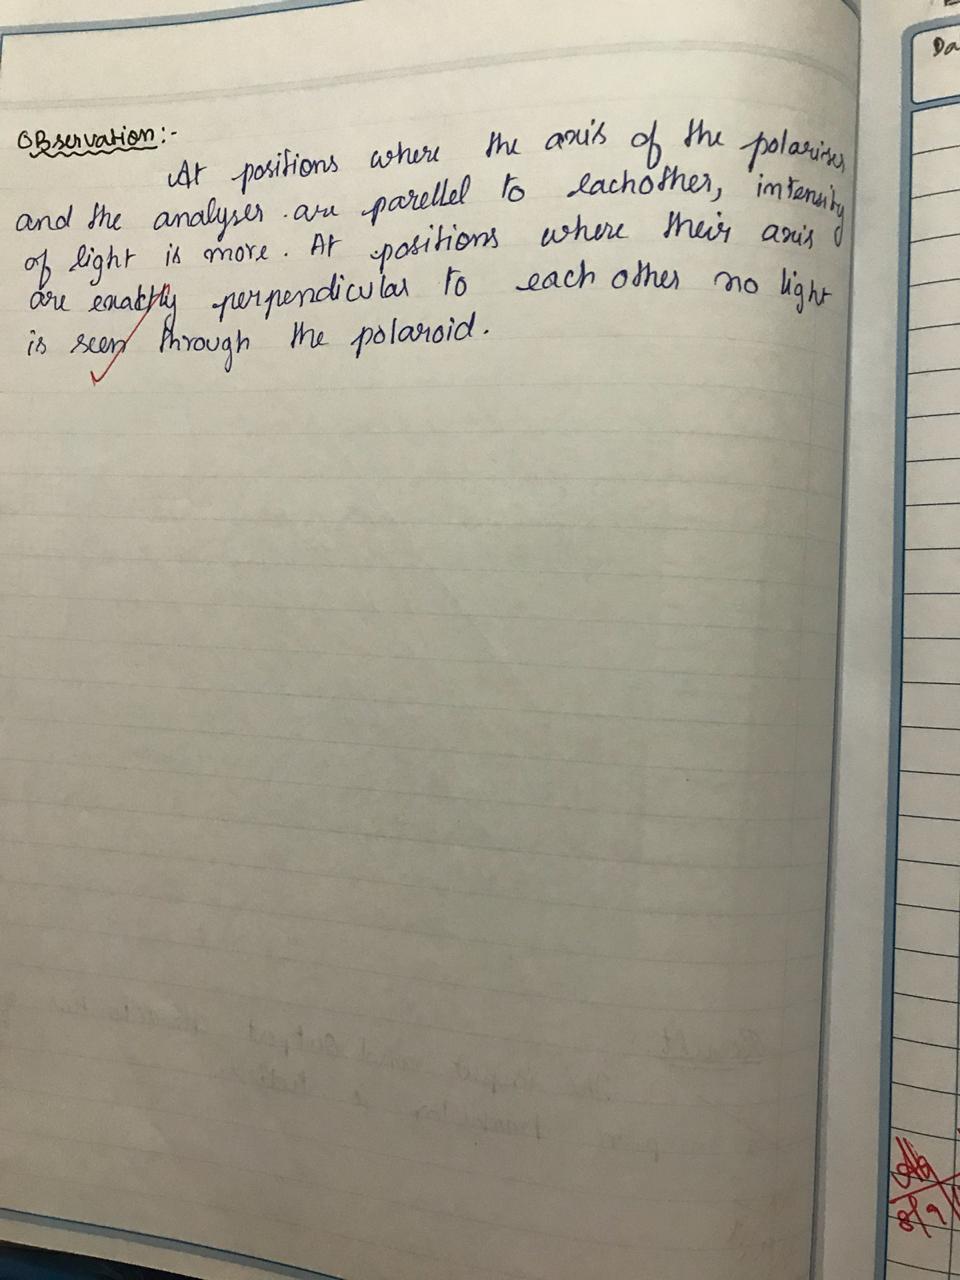 OBservation:-
At positions where the axis of the polariser
and the analyser are parellel to eachother, intensity
of light is more. At positions where their axis
are exactly perpendicular to each other no light
is seen through the polaroid.
Da
Result